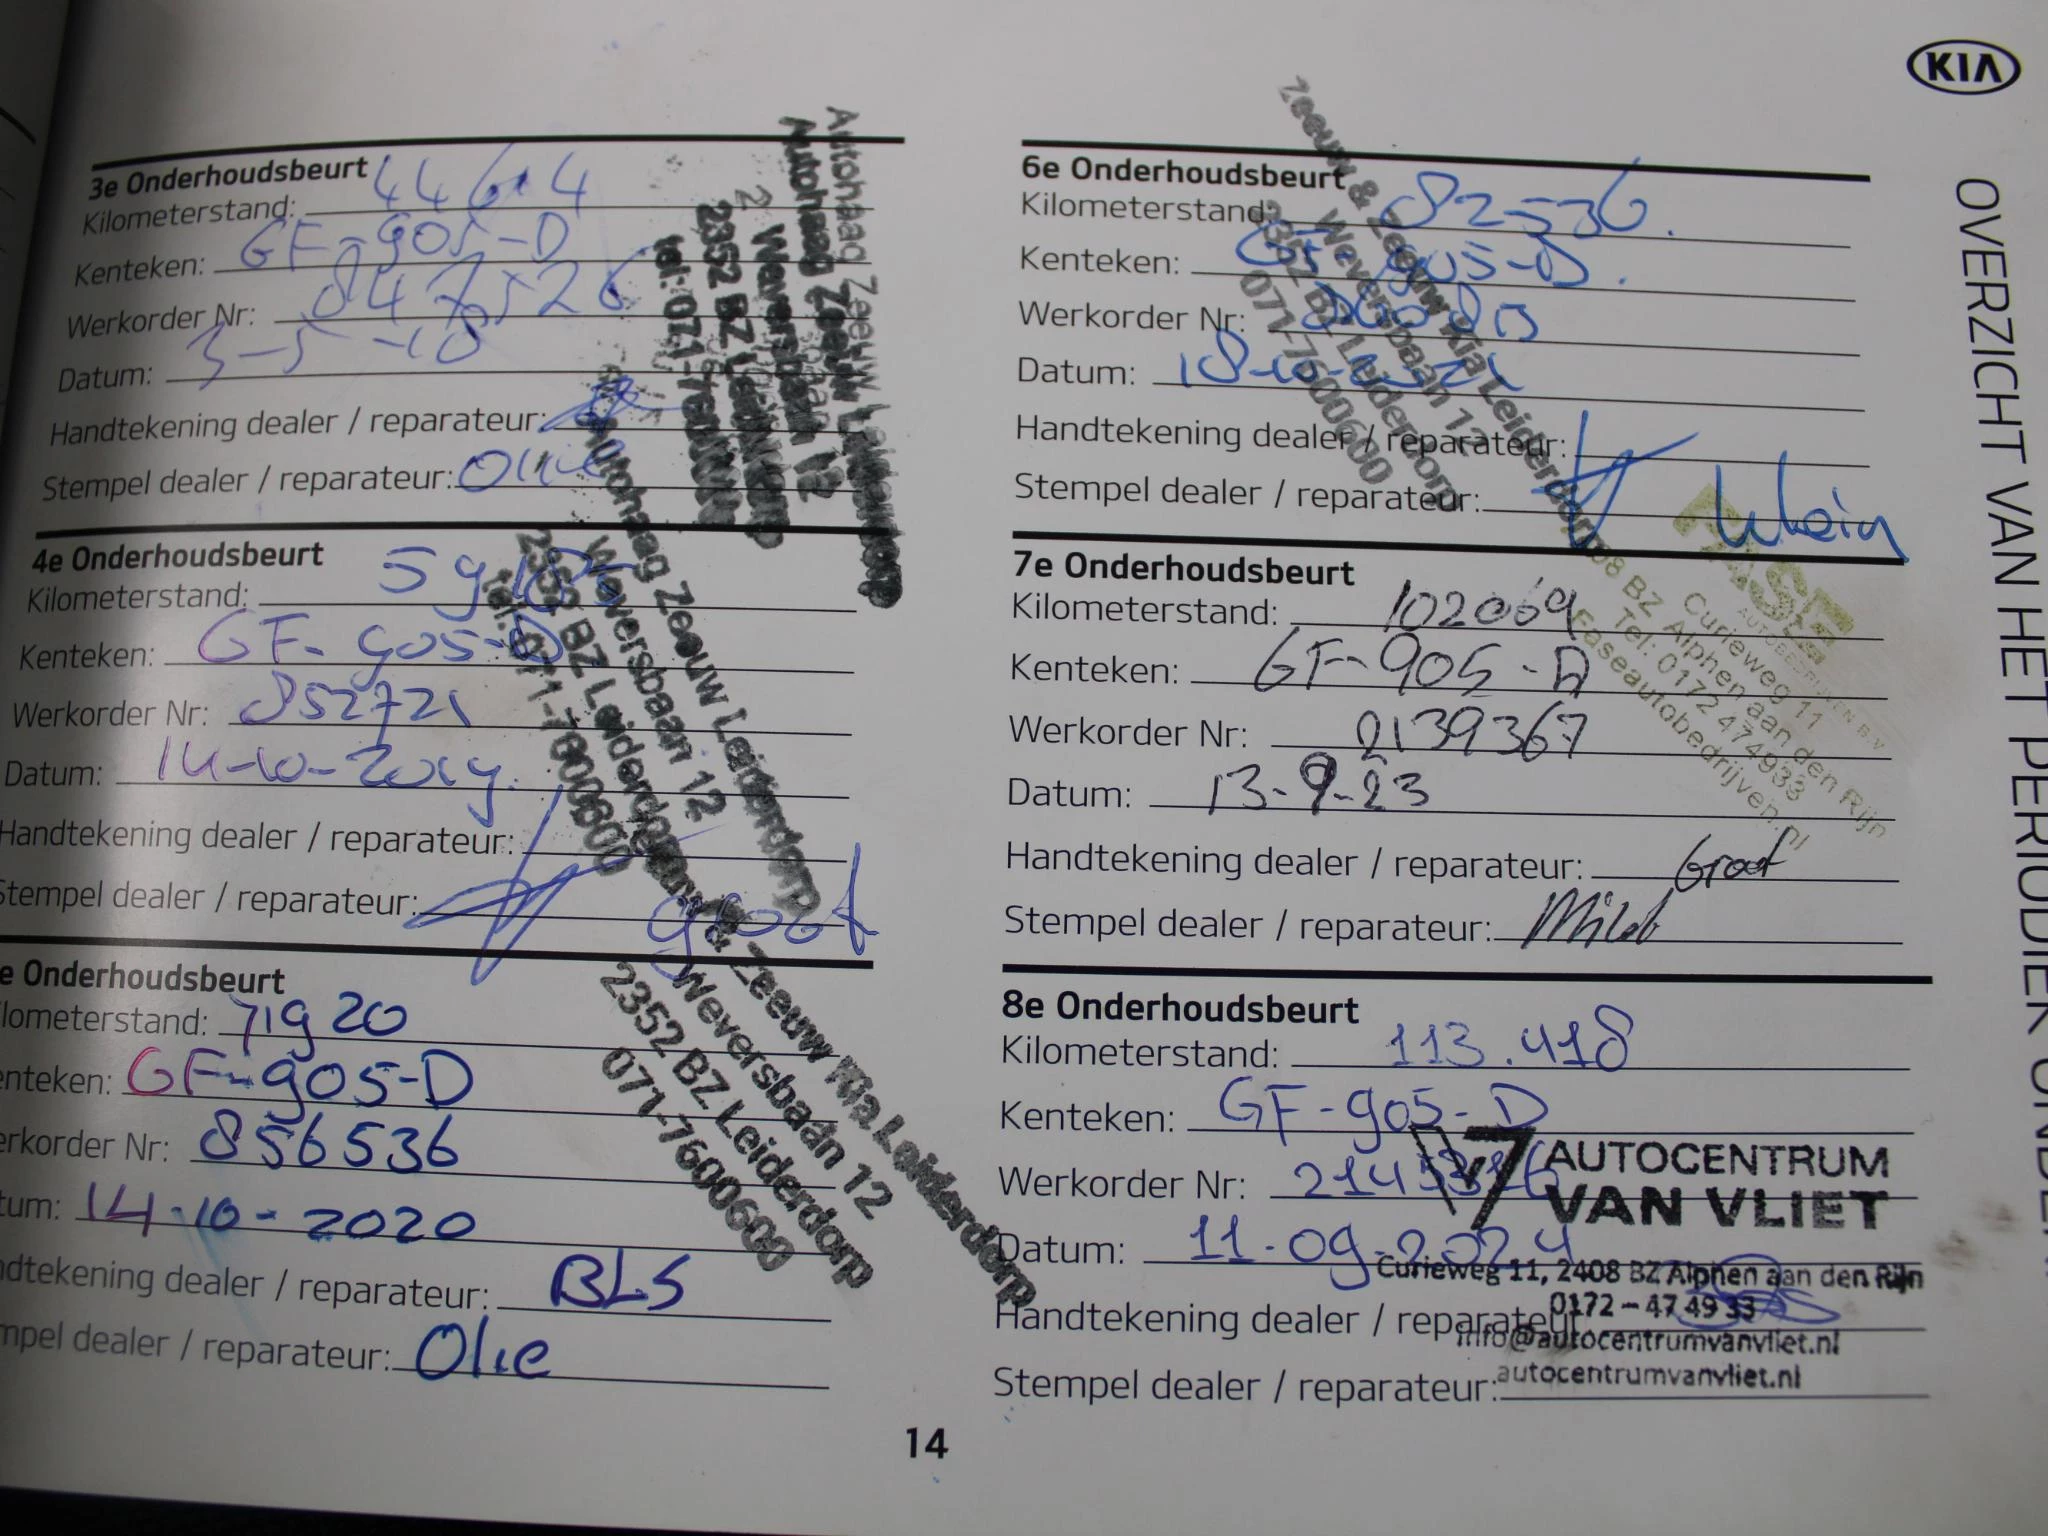 KIA
OVERZICHT VAN HET PERIODIEK
3e Onderhoudsbeurt
Kilometerstand: 44614
Kenteken: GF-905-D
Werkorder Nr: 847526
Datum: 3-5-18
Handtekening dealer / reparateur:
Stempel dealer / reparateur: Olie
Autohaag Zeeuw Leiderdorp
Weversbaan 12
2352 BZ Leiderdorp
tel: 071-7600600
4e Onderhoudsbeurt
Kilometerstand:
Kenteken: GF-905-D
Werkorder Nr: 852721
Datum: 14-10-2019.
Handtekening dealer / reparateur:
Stempel dealer / reparateur: groot
Autohaag Zeeuw Leiderdorp
Weversbaan 12
2352 BZ Leiderdorp
tel: 071-7600600
e Onderhoudsbeurt
lometerstand: 71920
enteken: GF-905-D
erkorder Nr: 856536
tum: 14-10-2020
ndtekening dealer / reparateur: BLS
mpel dealer / reparateur: Olie
& Zeeuw Kia Leiderdorp
Weversbaan 12
2352 BZ Leiderdorp
071-7600600
6e Onderhoudsbeurt
Kilometerstand: 82536.
Kenteken: GF-905-D.
Werkorder Nr:
Datum: 18-10-2021
Handtekening dealer / reparateur:
Stempel dealer / reparateur: klein
Zeeuw & Zeeuw Kia Leiderdorp
Weversbaan 12
2352 BZ Leiderdorp
071-7600600
7e Onderhoudsbeurt
Kilometerstand: 102069
Kenteken: GF-905-D
Werkorder Nr: 2139367
Datum: 13-9-23
Handtekening dealer / reparateur: Groot
Stempel dealer / reparateur:
FASE
AUTOBEDRIJVEN B.V.
Curieweg 11
2408 BZ Alphen aan den Rijn
Tel: 0172 474933
Faseautobedrijven.nl
8e Onderhoudsbeurt
Kilometerstand: 113.418
Kenteken: GF-905-D
Werkorder Nr: 2145316
Datum: 11-09-2024
Handtekening dealer / reparateur:
Stempel dealer / reparateur:
AUTOCENTRUM
VAN VLIET
Curieweg 11, 2408 BZ Alphen aan den Rijn
0172 - 47 49 33
info@autocentrumvanvliet.nl
autocentrumvanvliet.nl
14